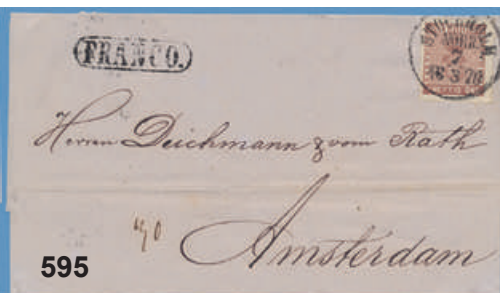 FRANCO.
STOCKHOLM
NORR
16 3 70
Herren Deichmann & vom Rath
Amsterdam
595